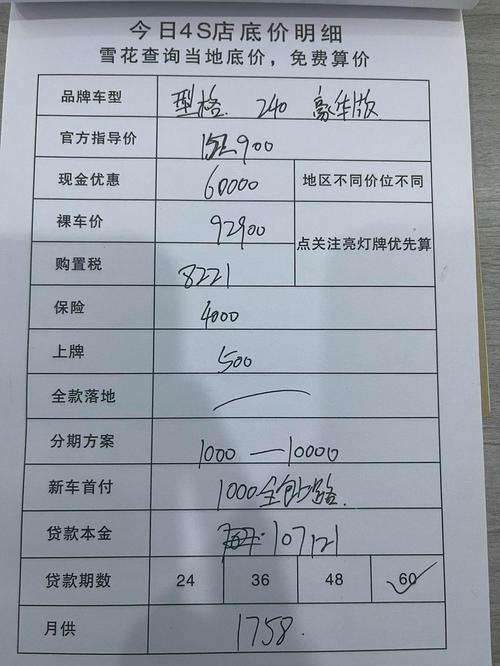 今日4S店底价明细
雪花查询当地底价，免费算价
品牌车型 型格. 240 豪华版
官方指导价 152900
现金优惠 60000 地区不同价位不同
裸车价 92900
点关注亮灯牌优先算
购置税 8221
保险 4000
上牌 500
全款落地
分期方案 1000—10000
新车首付 1000全包上路.
贷款本金 107121
贷款期数 24 36 48 60
月供 1758.